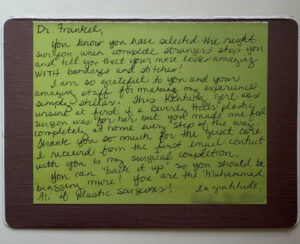 Dr. Frankel,
You know you have selected the right
surgeon when complete strangers stop you
and tell you that your nose looks amazing
WITH bandages and stitches!
I am so grateful to you and your
amazing staff for making my experience
simply stellar. This Kentucky girl was
unsure at first if a Beverly Hills plastic
surgeon was for her but you made me feel
completely at home every step of the way.
Thank you so much for the great care
I received from the first email contact
with you to my surgical completion.
You can "back it up" so you should be
bragging more! You are the Muhammad
Ali of plastic surgeons! In gratitude,